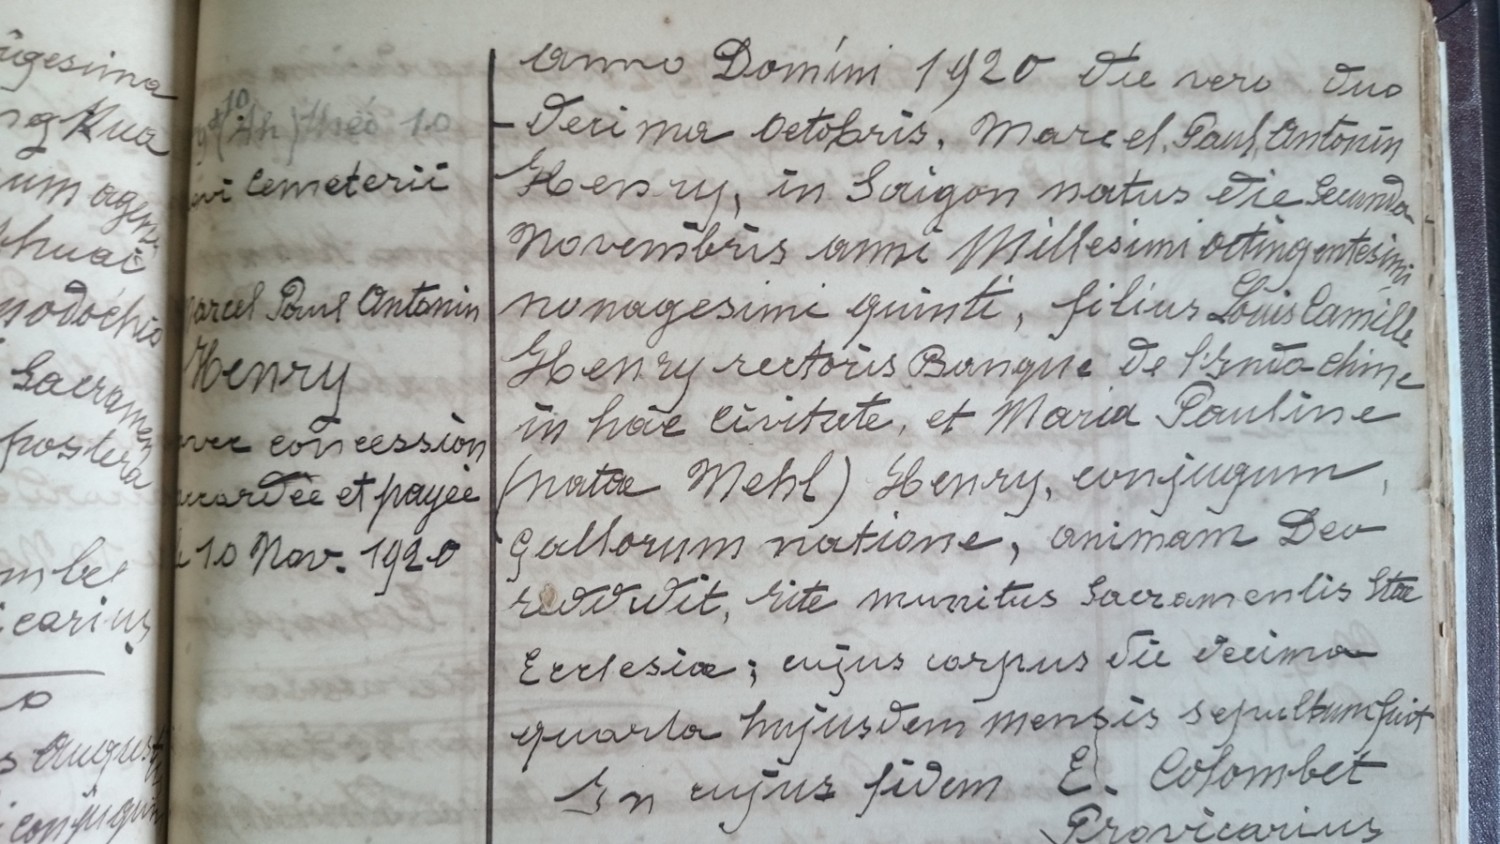 ugesima
ng Kua
um agen
khuai
nodochio
Sacramen
postera
mbet
icarius
o
s August
conjugum
Théo 10
ovi Cemeterii
arcel Paul Antonin
Henry
avec concession
accordée et payée
le 10 Nov. 1920
Anno Domini 1920 die vero duo
decima Octobris, Marcel, Paul, Antonin
Henry, in Saigon natus die Secunda
Novembris anni Millesimi octingentesimi
nonagesimi quinti, filius Louis Camille
Henry rectoris Banque de l'Indo-Chine
in hac Civitate, et Maria Pauline
(natae Mehl) Henry, conjugum,
gallorum natione, animam Deo
reddidit, rite munitus Sacramentis Stae
Ecclesiae; cujus corpus die decima
quarta hujusdem mensis sepultum fuit
In cujus fidem E. Colombet
Provicarius